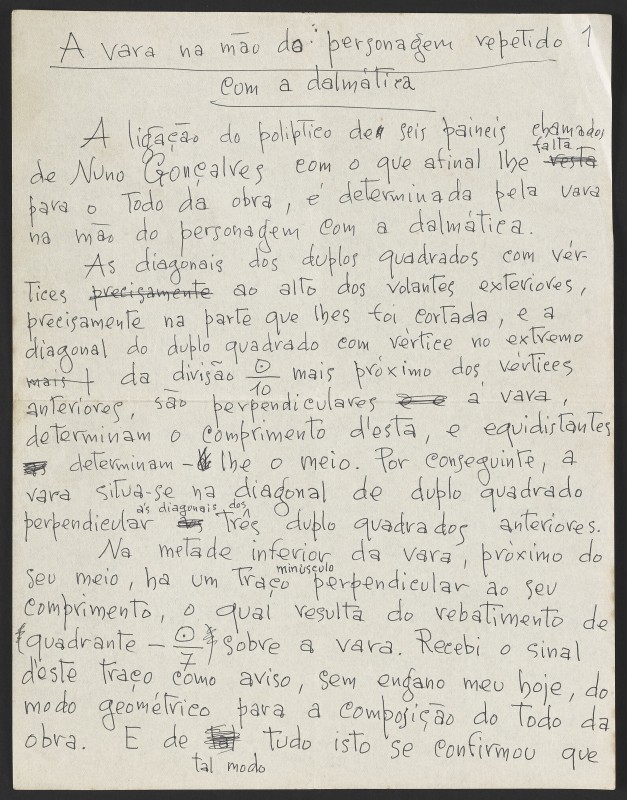 A vara na mão do personagem repetido 1
com a dalmática
A ligação do políptico de seis paineis chamados
de Nuno Gonçalves com o que afinal lhe falta
para o Todo da obra, é determinada pela vara
na mão do personagem com a dalmática.
As diagonais dos duplos quadrados com vér-
tices precisamente ao alto dos volantes exteriores,
precisamente na parte que lhes foi cortada, e a
diagonal do duplo quadrado com vértice no extremo
mais da divisão ⊙/10 mais próximo dos vértices
anteriores, são perpendiculares à vara,
determinam o comprimento d'esta, e equidistantes
determinam-lhe o meio. Por conseguinte, a
vara situa-se na diagonal de duplo quadrado
perpendicular às diagonais dos três duplo quadrados anteriores.
Na metade inferior da vara, próximo do
seu meio, ha um traço minúsculo perpendicular ao seu
comprimento, o qual resulta do rebatimento de
quadrante - ⊙/7 sobre a vara. Recebi o sinal
d'este traço como aviso, sem engano meu hoje, do
modo geométrico para a composição do Todo da
obra. E de tal modo tudo isto se confirmou que